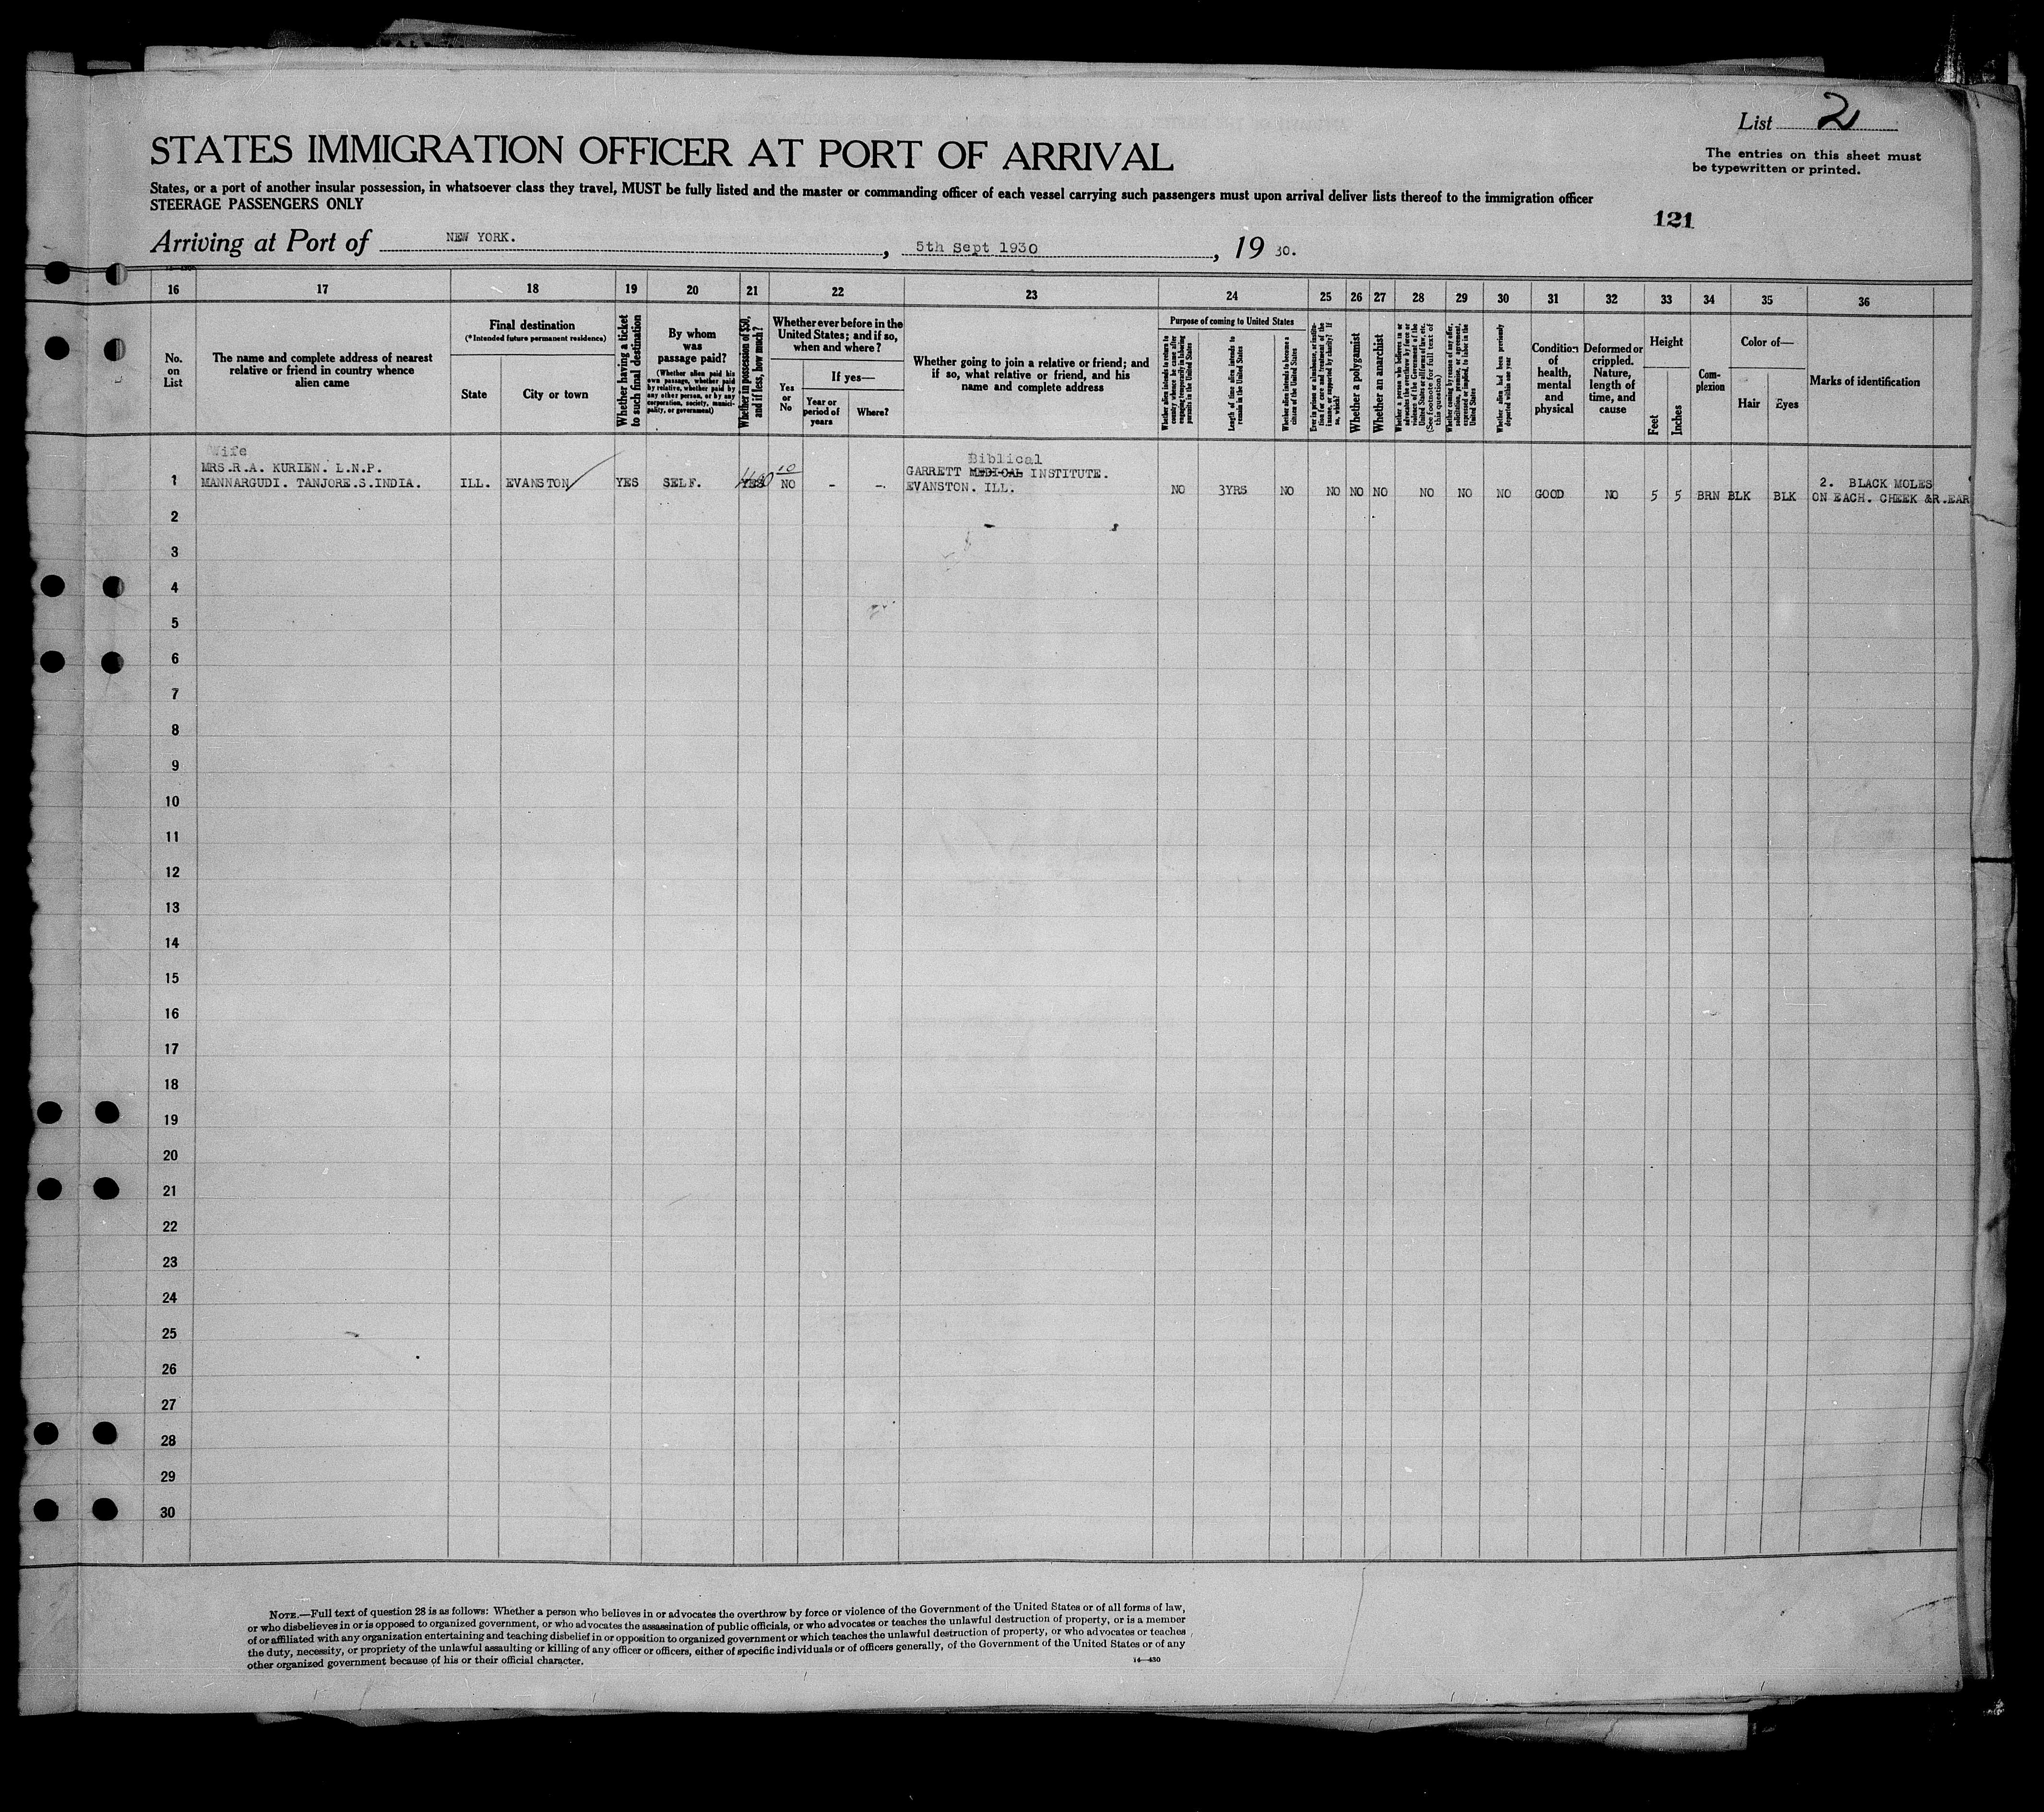 List 2
The entries on this sheet must
be typewritten or printed.
STATES IMMIGRATION OFFICER AT PORT OF ARRIVAL
States, or a port of another insular possession, in whatsoever class they travel, MUST be fully listed and the master or commanding officer of each vessel carrying such passengers must upon arrival deliver lists thereof to the immigration officer
STEERAGE PASSENGERS ONLY
121
Arriving at Port of NEW YORK. , 5th Sept 1930 , 19 30.
16 17 18 19 20 21 22 23 24 25 26 27 28 29 30 31 32 33 34 35 36
No.
on
List
The name and complete address of nearest
relative or friend in country whence
alien came
Final destination
(*Intended future permanent residence)
State
City or town
Whether having a ticket
to such final destination
By whom
was
passage paid?
(Whether alien paid his
own passage, whether paid
by relative, whether paid by
any other person, or by any
corporation, society, munici-
pality, or government)
Whether in possession of $50,
and if less, how much?
Whether ever before in the
United States; and if so,
when and where?
Yes
or
No
If yes—
Year or
period of
years
Where?
Whether going to join a relative or friend; and
if so, what relative or friend, and his
name and complete address
Purpose of coming to United States
Whether alien intends to return to
country whence he came after
engaging temporarily in laboring
pursuits in the United States
Length of time alien intends to
remain in the United States
Whether alien intends to become a
citizen of the United States
Ever in prison or almshouse, or institu-
tion for care and treatment of the
insane, or supported by charity? If
so, which?
Whether a polygamist
Whether an anarchist
Whether a person who believes in or
advocates the overthrow by force or
violence of the Government of the
United States or all forms of law, etc.
(See footnote for full text of
this question)
Whether coming by reason of any offer,
solicitation, promise, or agreement,
expressed or implied, to labor in the
United States
Whether alien had been previously
deported within one year
Condition
of
health,
mental
and
physical
Deformed or
crippled.
Nature,
length of
time, and
cause
Height
Feet
Inches
Com-
plexion
Color of—
Hair
Eyes
Marks of identification
Wife
MRS.R.A. KURIEN. L.N.P.
1 MANNARGUDI. TANJORE.S.INDIA. ILL. EVANSTON YES SELF. YES NO - -.
10
Biblical
GARRETT MEDICAL INSTITUTE.
EVANSTON. ILL. NO 3YRS NO NO NO NO NO NO NO GOOD NO 5 5 BRN BLK BLK
2. BLACK MOLES
ON EACH. CHEEK &R.EAR
2
3
4
5
6
7
8
9
10
11
12
13
14
15
16
17
18
19
20
21
22
23
24
25
26
27
28
29
30
NOTE.—Full text of question 28 is as follows: Whether a person who believes in or advocates the overthrow by force or violence of the Government of the United States or of all forms of law,
or who disbelieves in or is opposed to organized government, or who advocates the assassination of public officials, or who advocates or teaches the unlawful destruction of property, or is a member
of or affiliated with any organization entertaining and teaching disbelief in or opposition to organized government or which teaches the unlawful destruction of property, or who advocates or teaches
the duty, necessity, or propriety of the unlawful assaulting or killing of any officer or officers, either of specific individuals or of officers generally, of the Government of the United States or of any
other organized government because of his or their official character.
14—430